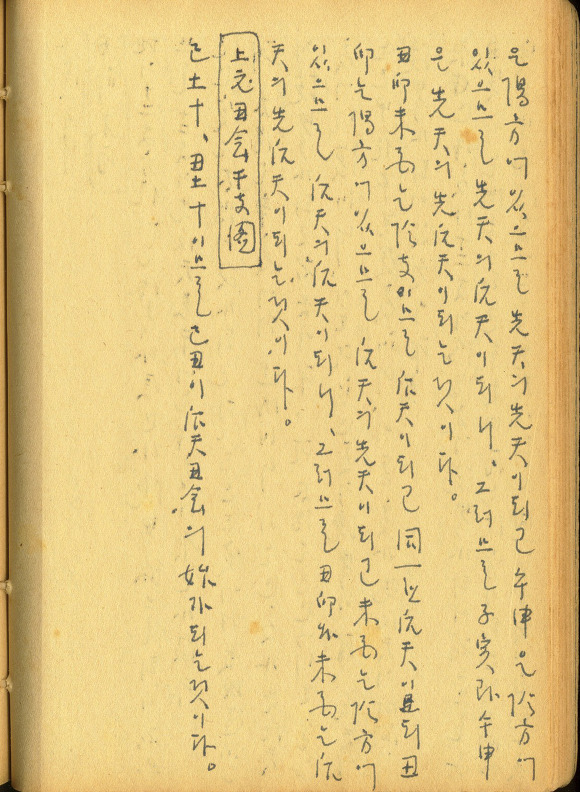 은 陽方에 있으므로 先天의 先天이되고 午申은 陰方에
있으므로 先天의 后天이되니、그러므로 子寅과 午申
은 先天의 先后天이되는 것이다。
丑卯未酉는 陰支이므로 后天이되고 同一한 后天이로되 丑
卯는 陽方에 있으므로 后天의 先天이되고 未酉는 陰方에
있으므로 后天의 后天이되니、그러므로 丑卯와 未酉는 后
天의 先后天이되는것이다。
上元丑会干支圖
己土十、丑土十이므로 己丑이 后天丑会의 始가되는것이다。